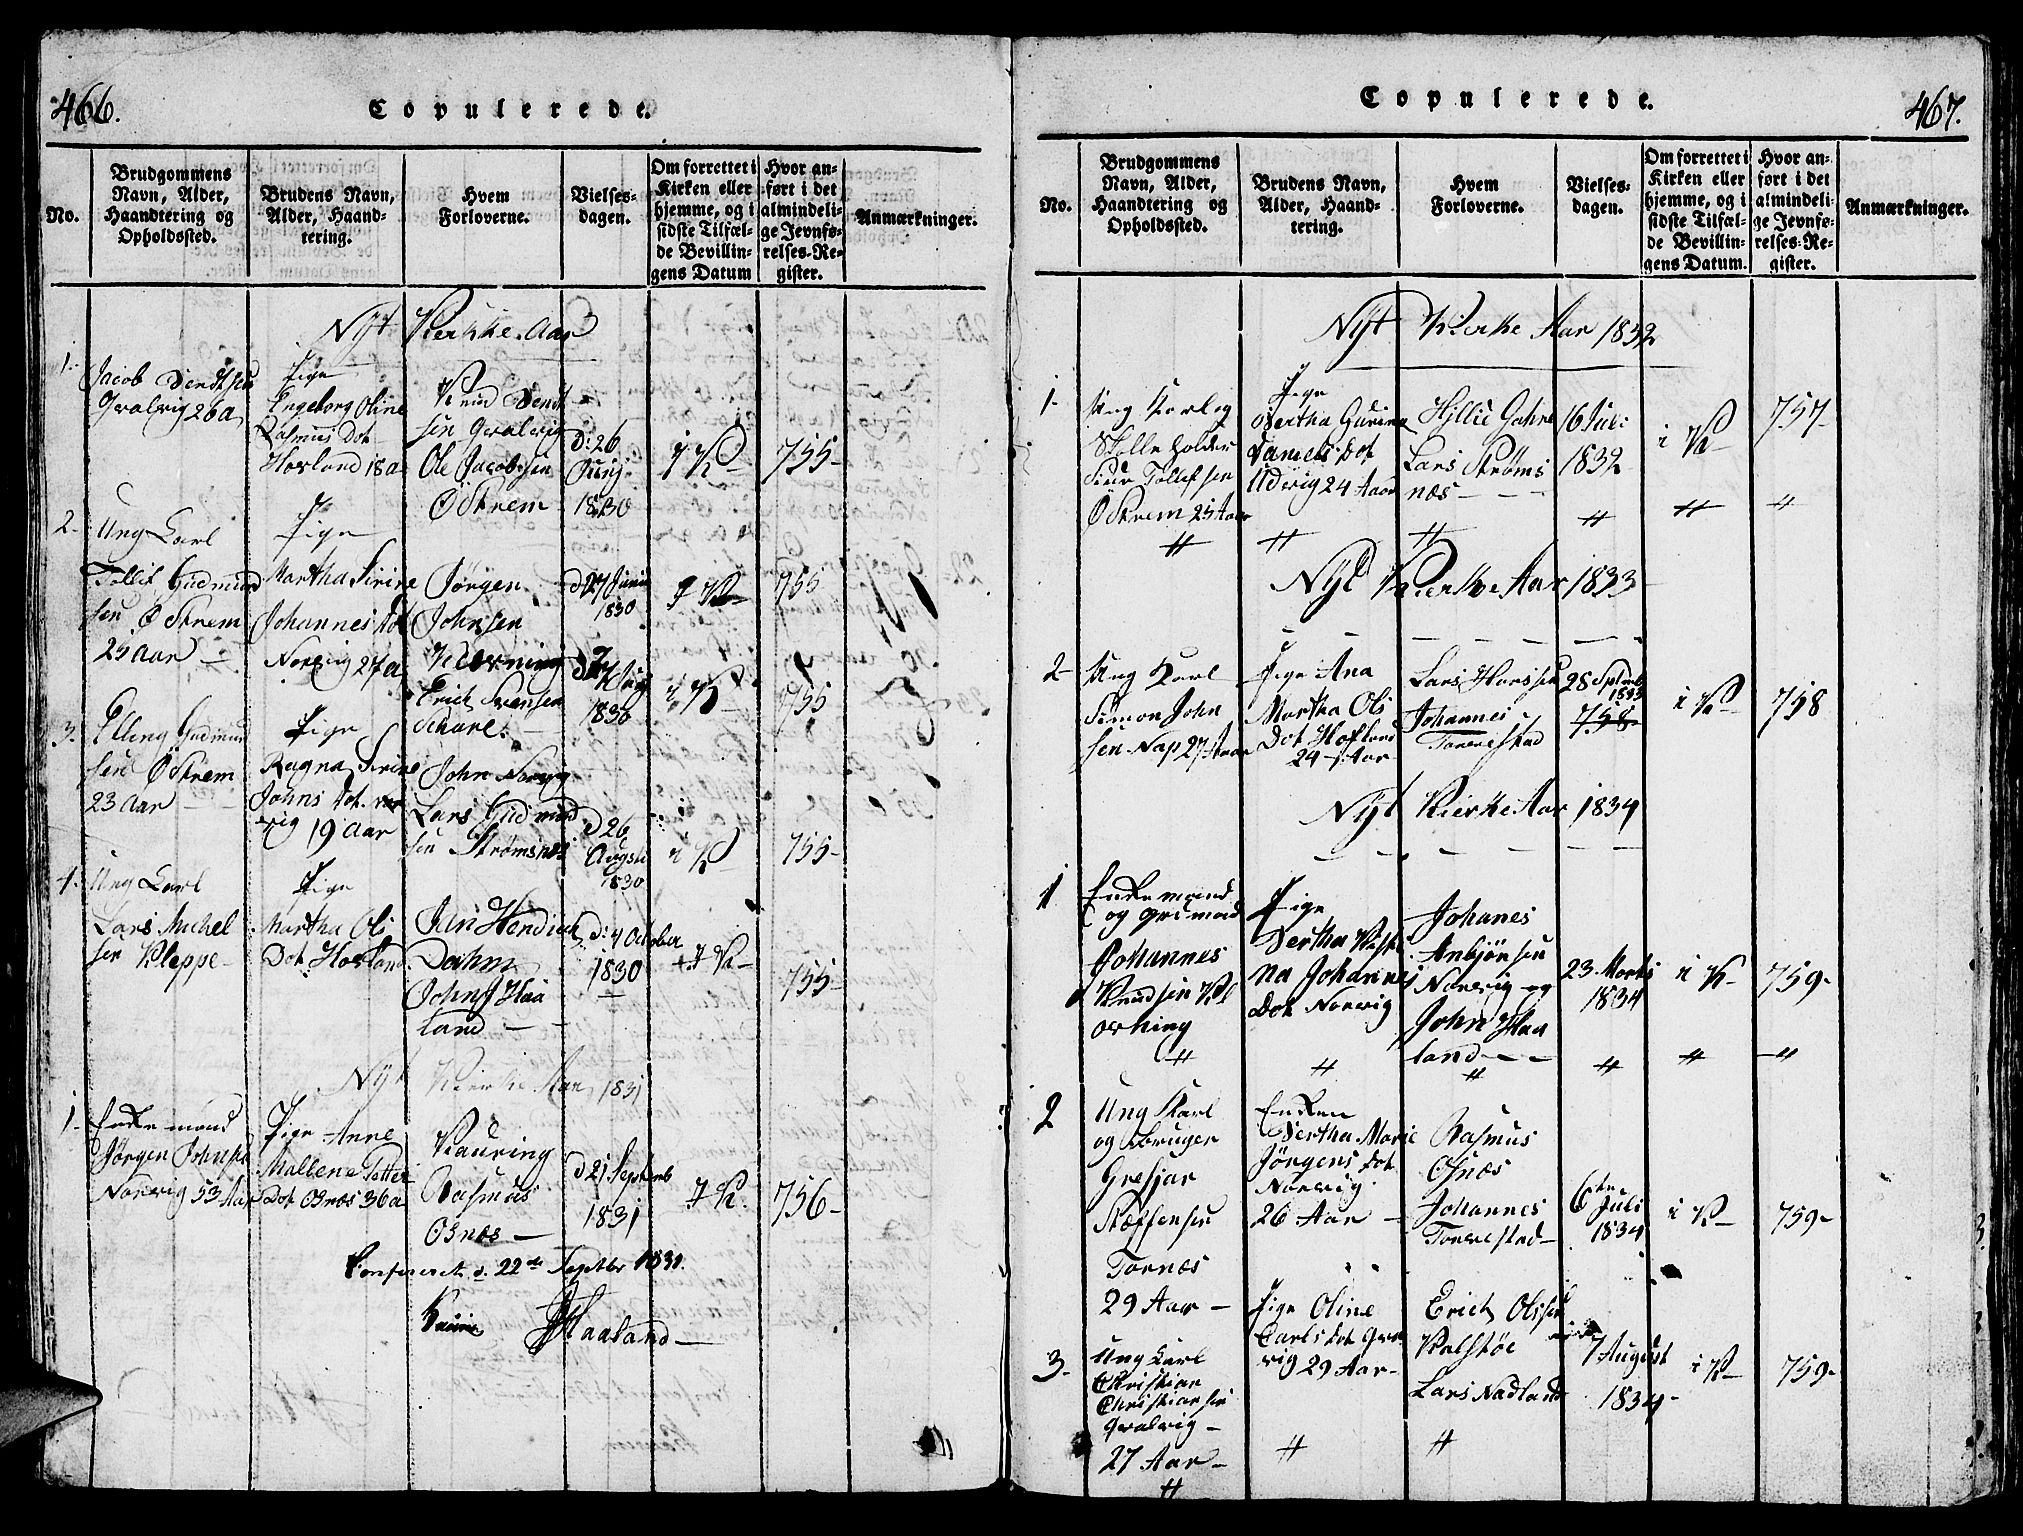 466.
Copulerede.
No.
Brudgommens
Navn, Alder,
Haandtering og
Opholdssted.
Brudens Navn,
Alder, Haand-
tering.
Hvem
Forloverne.
Vielses-
dagen.
Om forrettet i
Kirken eller
hjemme, og i
sidste Tilfæl-
de Bevillin-
gens Datum
Hvor an-
ført i det
almindeli-
ge Jevnfø-
relses-Re-
gister.
Anmærkninger.
Nyt Kierkke Aar
1.
Jacob
Qvalvig 26a
Pige
Engeborg Oline
Rasmus Dot
Hovland 18a
Knud
sen Qvalvig
Ole Jacobsen
Östrem
D. 26
Junj
1830
i K
755-
2-
Ung Karl
Tollif Gudmund
sen Östrem
25 Aar -
Pige
Martha Sirine
Johannes Dot
Norvig 27a
Jörgen
Johnsen
Erich Svensen
Schare.
d 27 Junii
1830
i K-
755
3.
Elling Gudmun
sen Östrem
23 Aar - -
Pige
Ragna Sirine
Johns Dot
vig 19 Aar
John Norvig
Lars Gudmund
sen Strømsnæs
1830
i K-
755
d 26
Augst
1830
i K
755-
4.
Ung Karl
Lars Michel
sen Kleppe-
Pige
Martha Ols
Dot Hovland
Jan Hendich
Dahm
John Haa
land - -
D. 4 October
1830
i K-
755-
Nyt Kierke Aar 1831
1-
Enke mand
Jörgen Johnsen
Norvig 53 Aar
Pige Anne
Mallena Petter
Dot Osnæs 36a
Rasmus
Osnæs -
d 21 Septemb
1831
i K.
756-
Confereret d. 22de Septbr 1831.
Haaland-
467.
Copulerede.
No.
Brudgommens
Navn, Alder,
Haandtering og
Opholdssted.
Brudens Navn,
Alder, Haand-
tering.
Hvem
Forloverne.
Vielses-
dagen.
Om forrettet i
Kirken eller
hjemme, og i
sidste Tilfæl-
de Bevillin-
gens Datum.
Hvor an-
ført i det
almindeli-
ge Jevnfø-
relses-Re-
gister.
Anmærkninger.
Nyt Kierke Aar 1832
1-
Ung Karl og
Tollefsen
Östrem 25 Aar
Pige
Bertha Gurine
Daniels Dot
Udvig 24 Aar
Lars Strøms
næs - - -
16 Juli
1832
i K-
757-
Nyt Kierke Aar 1833
2-
Ung Karl
Simon John
sen Nap 27 Aar
Pige Ana
Martha Ols
Dot Hofland
24 Aar
Lars
Johannes
Torvestad
28 Septmb
1833
758
i K-
758
Nyt Kierke Aar 1834
1
Enke mand
og
Johannes
Knudsen
Pige
Bertha
na Johannes
Dot Norvig
Johanes
Anbjönsen
Norvig og
John Haa
land - -
23 Marts
1834
i K-
759-
2
Ung Karl
og bruger
Gresjar
Stæffensen
Tornæs
29 Aar -
Enken
Bertha Marie
Jörgens Dot
Norvig
26 Aar -
Rasmus
Osnæs
Johannes
Torvestad-
6te Juli
1834
i K-
759-
3-
Ung Karl
Christian
Christiansen
Qvalvig-
27 Aar-
Pige Oline
Carls Dot
vig 29 Aar-
Erich Olssen
Kalstöe
Lars Nadland
7 August
1834-
i K-
759-